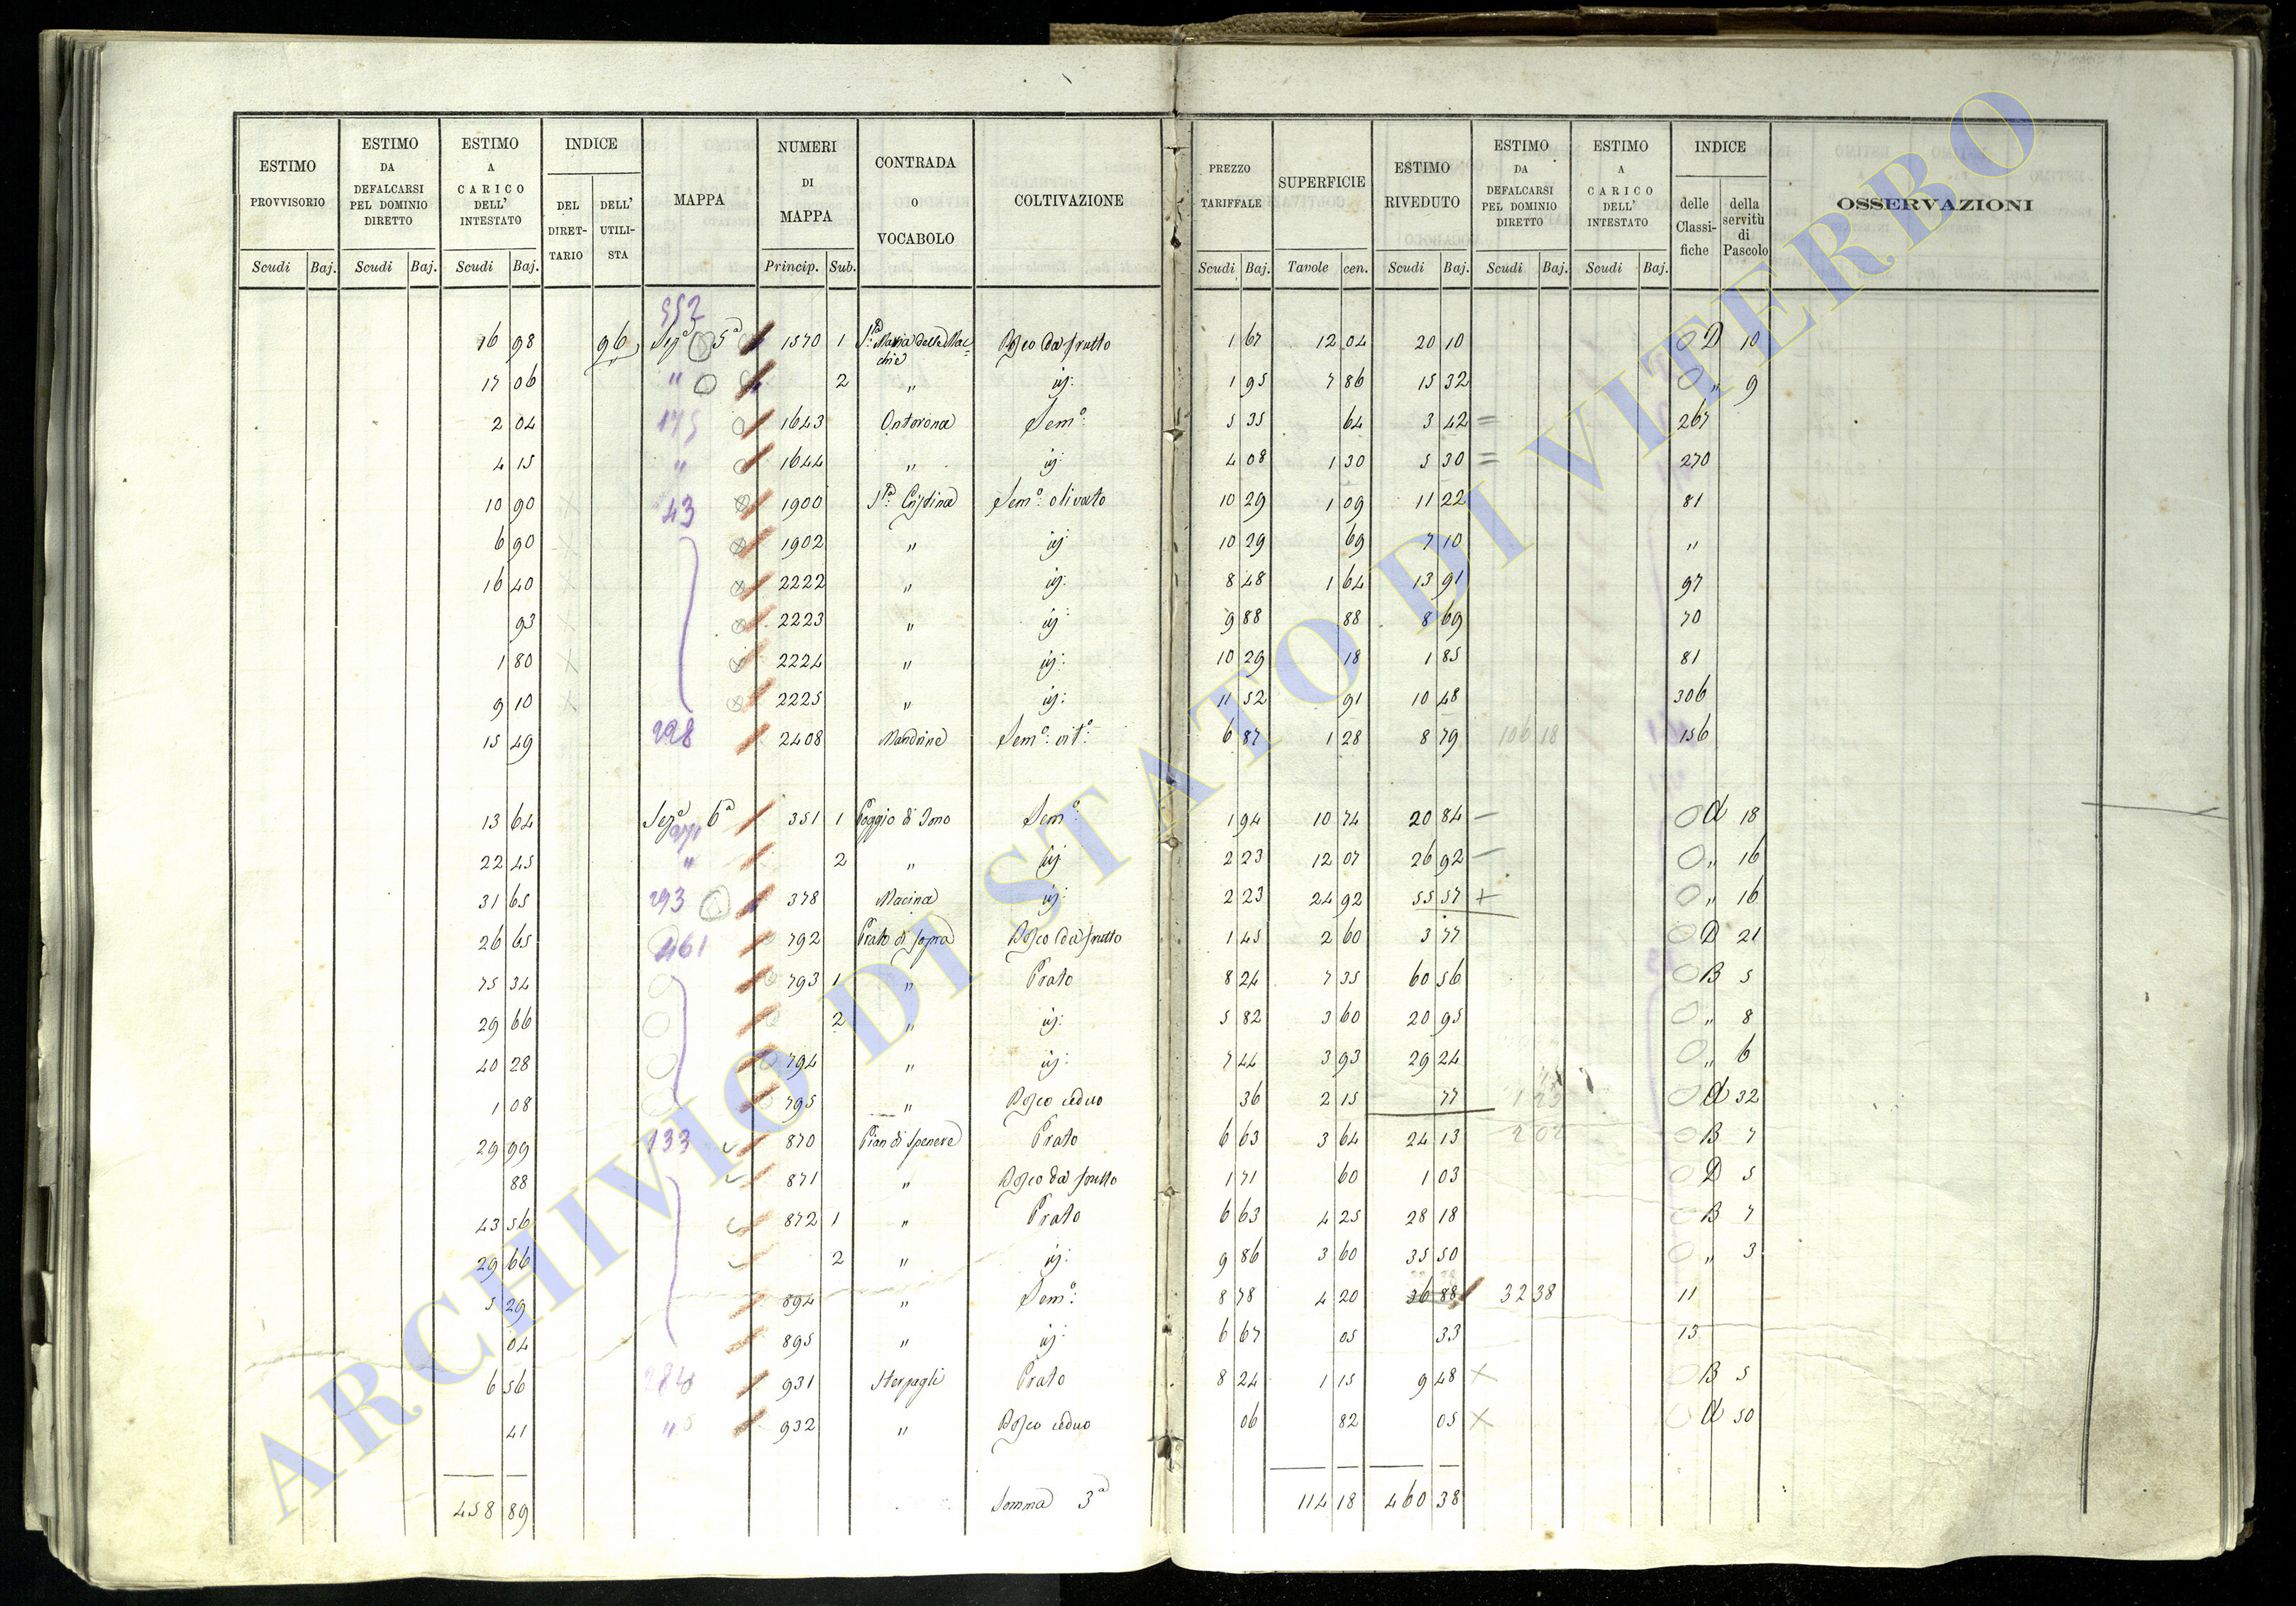 ESTIMO PROVVISORIO Scudi Baj.
ESTIMO DA DEFALCARSI PEL DOMINIO DIRETTO Scudi Baj.
ESTIMO A CARICO DELL' INTESTATO Scudi Baj.
INDICE DEL DIRETTARIO DELL' UTILISTA
MAPPA
NUMERI DI MAPPA Princip. Sub.
CONTRADA O VOCABOLO
COLTIVAZIONE
PREZZO TARIFFALE Scudi Baj.
SUPERFICIE Tavole cen.
ESTIMO RIVEDUTO Scudi Baj.
ESTIMO DA DEFALCARSI PEL DOMINIO DIRETTO Scudi Baj.
ESTIMO A CARICO DELL' INTESTATO Scudi Baj.
INDICE delle Classifiche della servitù di Pascolo
OSSERVAZIONI
552
16 98 96 Sezª 5ª 1570 1 Sta Maria delle Macchie Bosco da frutto 1 67 12 04 20 10 D 10
17 06 " 2 " id: 1 95 7 86 15 32 " 9
2 04 175 1643 Semº: 5 35 64 3 42 = 267
4 15 " 1644 " id: 4 08 1 30 5 30 = 270
10 90 43 1900 Sta Cristina Semº: olivato 10 29 1 09 11 22 81
6 90 1902 " id: 10 29 69 7 10 "
16 40 2222 " id: 8 48 1 64 13 91 97
93 2223 " id: 9 88 88 8 69 70
1 80 2224 " id: 10 29 18 1 85 81
9 10 2225 " id: 11 52 91 10 48 306
15 49 298 2408 Mandrine Semº: vitº: 6 87 1 28 8 79 106 18 156
13 64 Sezª 6ª 351 1 Poggio di Semº: 1 94 10 74 20 84 - A 18
22 45 " 2 " id: 2 23 12 07 26 92 - " 16
31 65 293 378 Macina id: 2 23 24 92 55 57 + " 16
26 65 461 792 Prato di sopra Bosco da frutto 1 45 2 60 3 77 D 21
75 34 793 1 " Prato 8 24 7 35 60 56 B 5
29 66 2 " id: 5 82 3 60 20 95 " 8
40 28 794 " id: 7 44 3 93 29 24 " 6
1 08 795 " Bosco ceduo 36 2 15 77 A 32
29 99 133 870 Pian di Spenere Prato 6 63 3 64 24 13 2 02 B 7
88 871 " Bosco da frutto 1 71 60 1 03 D 5
43 56 872 1 " Prato 6 63 4 25 28 18 B 7
29 66 2 " id: 9 86 3 60 35 50 " 3
5 29 894 " Semº: 8 78 4 20 36 88 32 38 11
04 895 " id: 6 67 05 33 13
6 56 931 Sterpagli Prato 8 24 1 15 9 48 × B 5
41 " 932 " Bosco ceduo 06 82 05 × A 50
458 89 Somma 3ª 114 18 460 38
ARCHIVIO DI STATO DI VITERBO